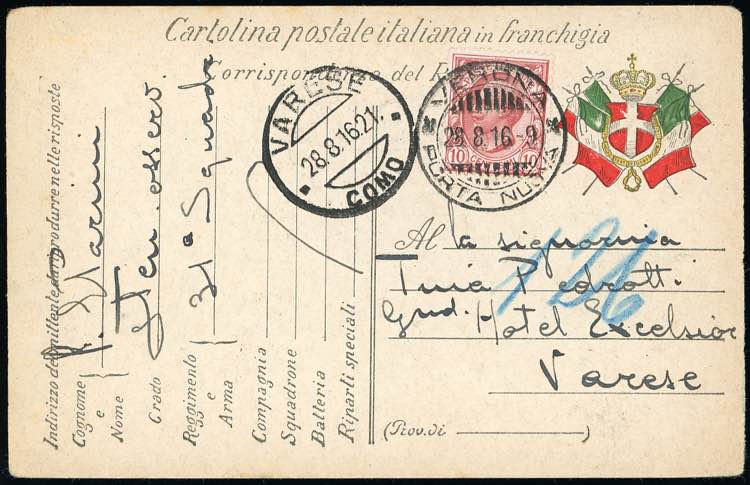 Cartolina postale italiana in franchigia
Corrispondenza del R.
VARESE
28.8.16.21.
COMO
VERONA
28.8.16-9
PORTA NUOVA
10 10
Al la signorina
Pedrotti
Grd. Hotel Excelsior
Varese
126
(Prov. di )
Indirizzo del mittente da riprodurre nelle risposte
Cognome e Nome Marini
Grado Ten. osserv.
Reggimento e Arma 31a Squadr.
Compagnia
Squadrone
Batteria
Riparti speciali